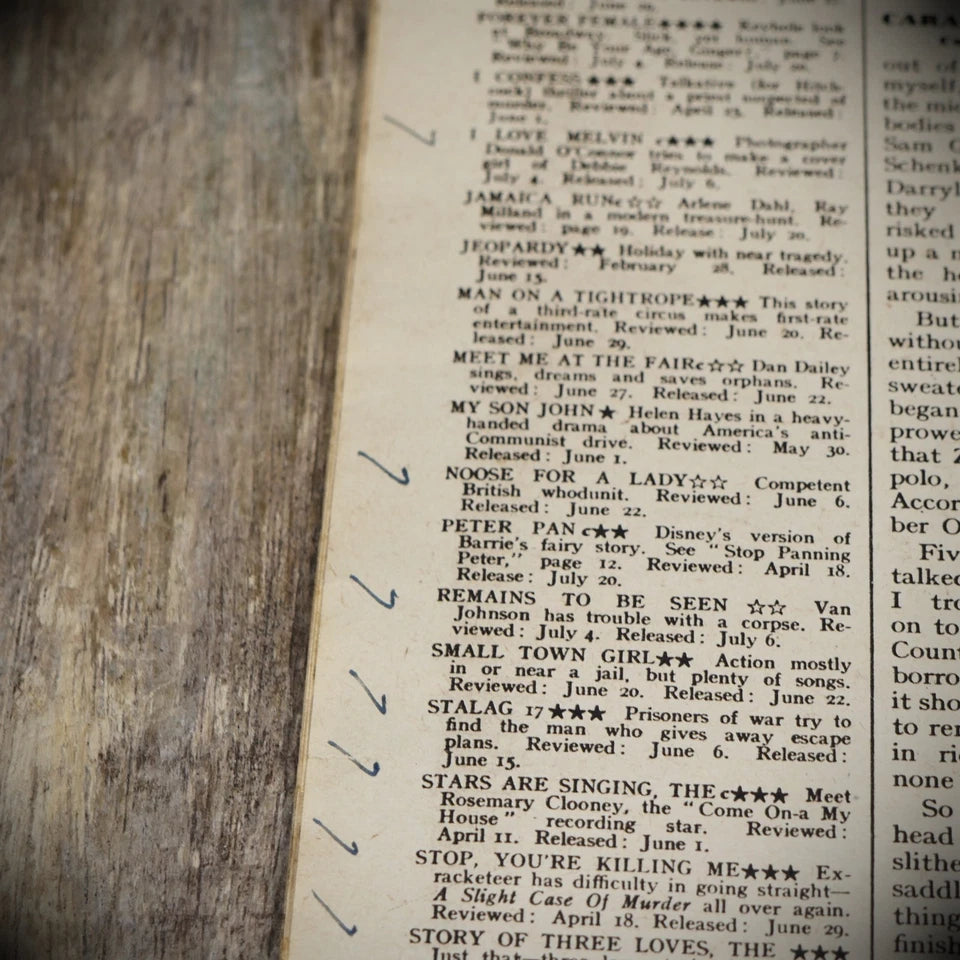 Released: June
FOREVER FEMALE★★★★ Keyhole look
at Broadway. Slick, yet human. See
"Why Be Your Age, Ginger?," page 7.
Reviewed: July 4. Release: July 20.
I CONFESS★★★ Talkative (for Hitch-
cock) thriller about a priest suspected of
murder. Reviewed: April 25. Released:
June 1.
I LOVE MELVIN c★★★ Photographer
Donald O'Connor tries to make a cover
girl of Debbie Reynolds. Reviewed:
July 4. Released: July 6.
JAMAICA RUNc☆☆ Arlene Dahl, Ray
Milland in a modern treasure-hunt. Re-
viewed: page 19. Release: July 20.
JEOPARDY★★ Holiday with near tragedy.
Reviewed: February 28. Released:
June 15.
MAN ON A TIGHTROPE★★★ This story
of a third-rate circus makes first-rate
entertainment. Reviewed: June 20. Re-
leased: June 29.
MEET ME AT THE FAIRc☆☆ Dan Dailey
sings, dreams and saves orphans. Re-
viewed: June 27. Released: June 22.
MY SON JOHN★ Helen Hayes in a heavy-
handed drama about America's anti-
Communist drive. Reviewed: May 30.
Released: June 1.
NOOSE FOR A LADY☆☆ Competent
British whodunit. Reviewed: June 6.
Released: June 22.
PETER PAN c★★ Disney's version of
Barrie's fairy story. See "Stop Panning
Peter," page 12. Reviewed: April 18.
Release: July 20.
REMAINS TO BE SEEN ☆☆ Van
Johnson has trouble with a corpse. Re-
viewed: July 4. Released: July 6.
SMALL TOWN GIRL★★ Action mostly
in or near a jail, but plenty of songs.
Reviewed: June 20. Released: June 22.
STALAG 17★★★ Prisoners of war try to
find the man who gives away escape
plans. Reviewed: June 6. Released:
June 15.
STARS ARE SINGING, THE c★★★ Meet
Rosemary Clooney, the "Come On-a My
House" recording star. Reviewed:
April 11. Released: June 1.
STOP, YOU'RE KILLING ME★★★ Ex-
racketeer has difficulty in going straight—
A Slight Case Of Murder all over again.
Reviewed: April 18. Released: June 29.
STORY OF THREE LOVES, THE ★★★
Just that—three
CARA
out of
myself,
the mi
bodies
Sam G
Schenk
Darryl
they
risked
up a m
the h
arousi
But
withou
entirel
sweate
began
prowe
that Z
polo,
Accor
ber O
Fiv
talked
I tro
on to
Count
borro
it sho
to rem
in ri
none
So
head
slithe
saddl
thing
finish